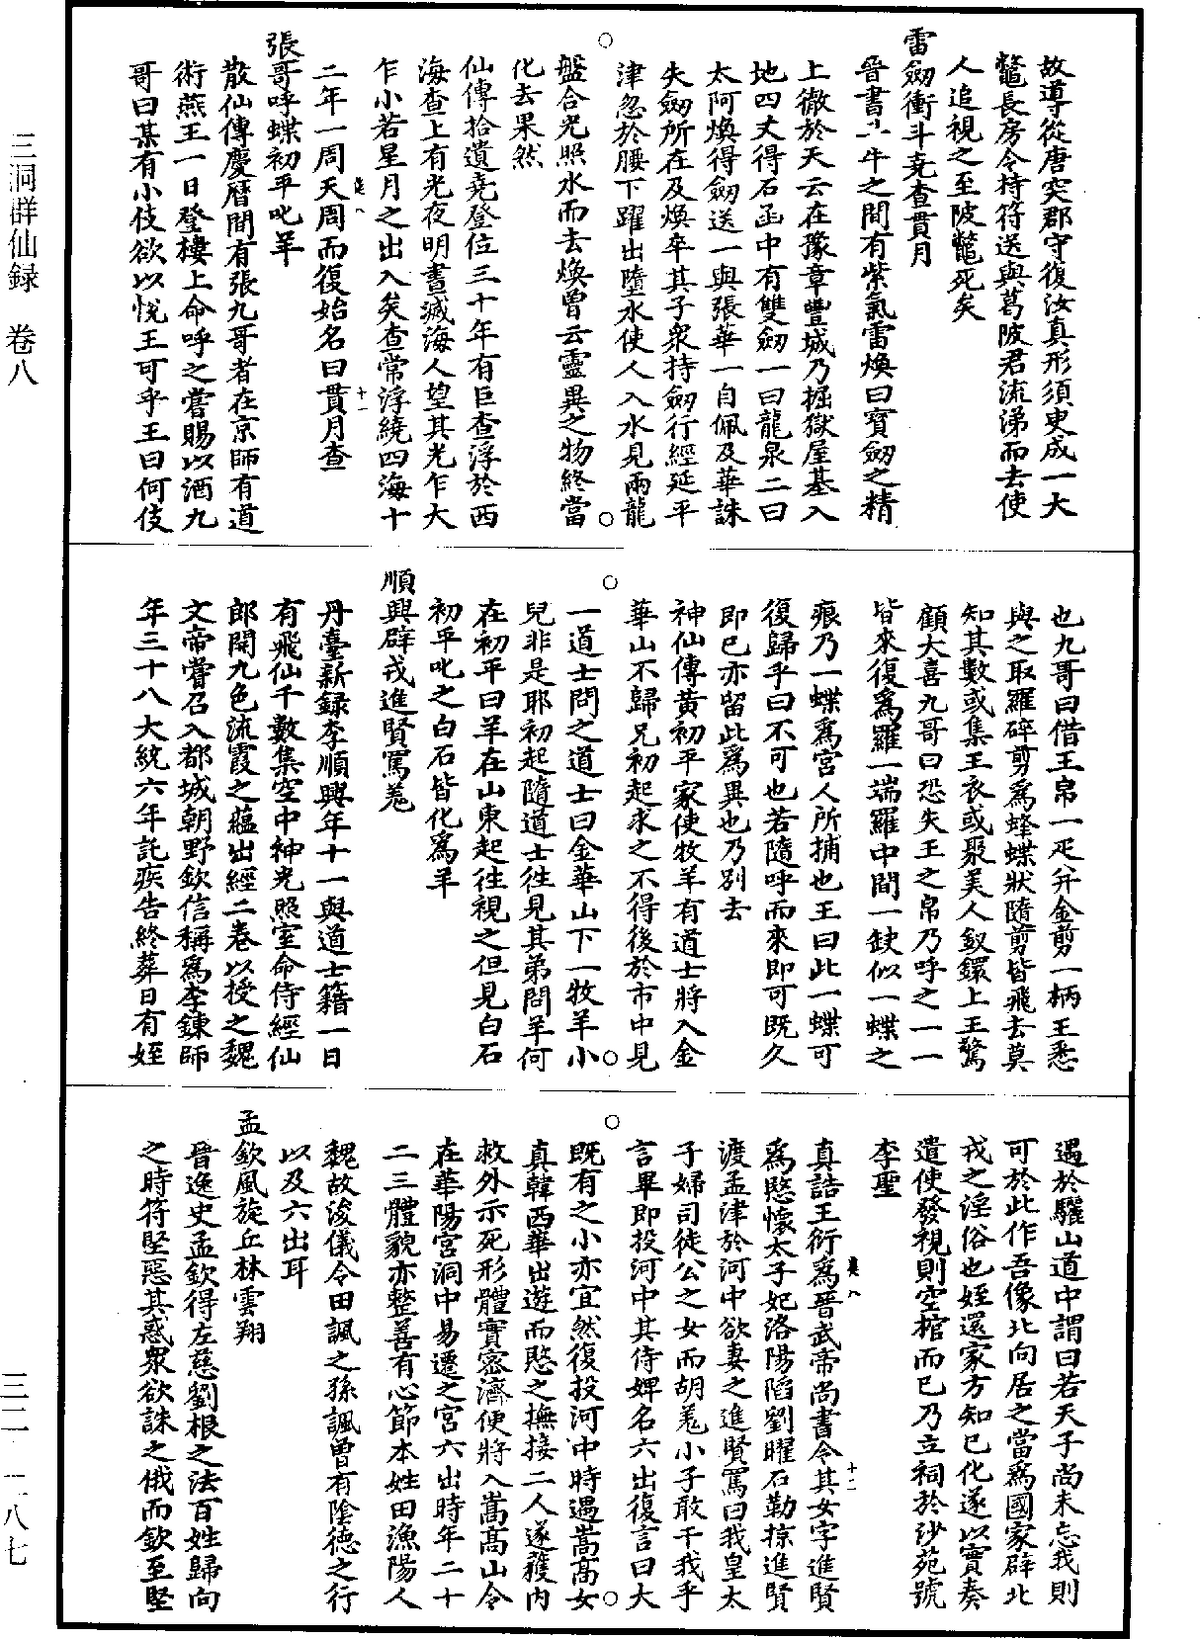 故導從唐突郡守復汝真形須臾成一大
鼈長房令持符送與葛陂君流涕而去使
人追視之至陂鼈死矣
雷劒衝斗堯查貫月
晉書斗牛之間有紫氣雷煥曰寳劒之精
上徹於天云在豫章豐城乃掘獄屋基入
地四丈得石函中有雙劒一曰龍泉二曰
太阿煥得劒送一與張華一自佩及華誅
失劒所在及煥卒其子衆持劒行經延平
津忽於腰下躍出墮水使人入水見兩龍
盤合光照水而去煥曾云靈異之物終當
化去果然
仙傳拾遺堯登位三十年有巨查浮於西
海查上有光夜明晝滅海人望其光乍大
乍小若星月之出入矣查常浮繞四海十
二年一周天周而復始名曰貫月查
張哥呼蝶初平叱羊
散仙傳慶曆間有張九哥者在京師有道
術燕王一日登樓上命呼之嘗賜以酒九
哥曰某有小伎欲以悅王可乎王曰何伎
也九哥曰借王帛一疋并金剪一柄王悉
與之取羅碎剪爲蜂蝶狀隨剪皆飛去莫
知其數或集王衣或聚美人釵鐶上王驚
顧大喜九哥曰恐失王之帛乃呼之一一
皆來復爲羅一端羅中間一缺似一蝶之
痕乃一蝶爲宮人所捕也王曰此一蝶可
復歸乎曰不可也若隨呼而來即可既久
即已亦留此爲異也乃別去
神仙傳黃初平家使牧羊有道士將入金
華山不歸兄初起求之不得後於市中見
一道士問之道士曰金華山下一牧羊小
兒非是耶初起隨道士徃見其弟問羊何
在初平曰羊在山東起徃視之但見白石
初平叱之白石皆化爲羊
順興辟戎進賢罵羗
丹臺新録李順興年十一與道士籍一日
有飛仙千數集空中神光照室命侍經仙
郎開九色流霞之蘊出經二卷以授之魏
文帝嘗召入都城朝野欽信稱爲李鍊師
年三十八大統六年託疾告終葬日有姪
遇於驪山道中謂曰若天子尚未忘我則
可於此作吾像北向居之當爲國家辟北
戎之淫俗也姪還家方知已化遂以實奏
遣使發視則空棺而已乃立祠於沙苑號
李聖
真誥王衍爲晉武帝尚書令其女字進賢
爲愍懷太子妃洛陽陷劉曜石勒掠進賢
渡孟津於河中欲妻之進賢罵曰我皇太
子婦司徒公之女而胡羗小子敢干我乎
言畢即投河中其侍婢名六出復言曰大
既有之小亦宜然復投河中時遇嵩高女
真韓西華出遊而愍之撫接二人遂獲内
救外示死形體實密濟便將入嵩高山今
在華陽宮洞中易遷之宮六出時年二十
二三體貌亦整善有心節本姓田漁陽人
魏故浚儀令田諷之孫諷曾有陰德之行
以及六出耳
孟欽風旋丘林雲翔
晉逸史孟欽得左慈劉根之法百姓歸向
之時符堅惡其惑衆欲誅之俄而欽至堅
三洞群仙録 卷八
三二—二八七